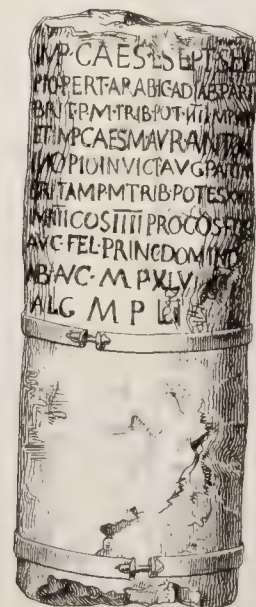 IMP·CAES·L·SEPT·SEV
PIO·PERT·ARABIC·ADIAB·PART
BRIT·P·M·TRIB·POT
ET IMP CAES MAVR ANTON
PIO INVICT AVG PART
BRITAM P M TRIB·POTES
COS IIII PROCOS ET
AVG·FEL·PRINC DOMINO
AB·AVG·M P XLVI
ALG M P LI